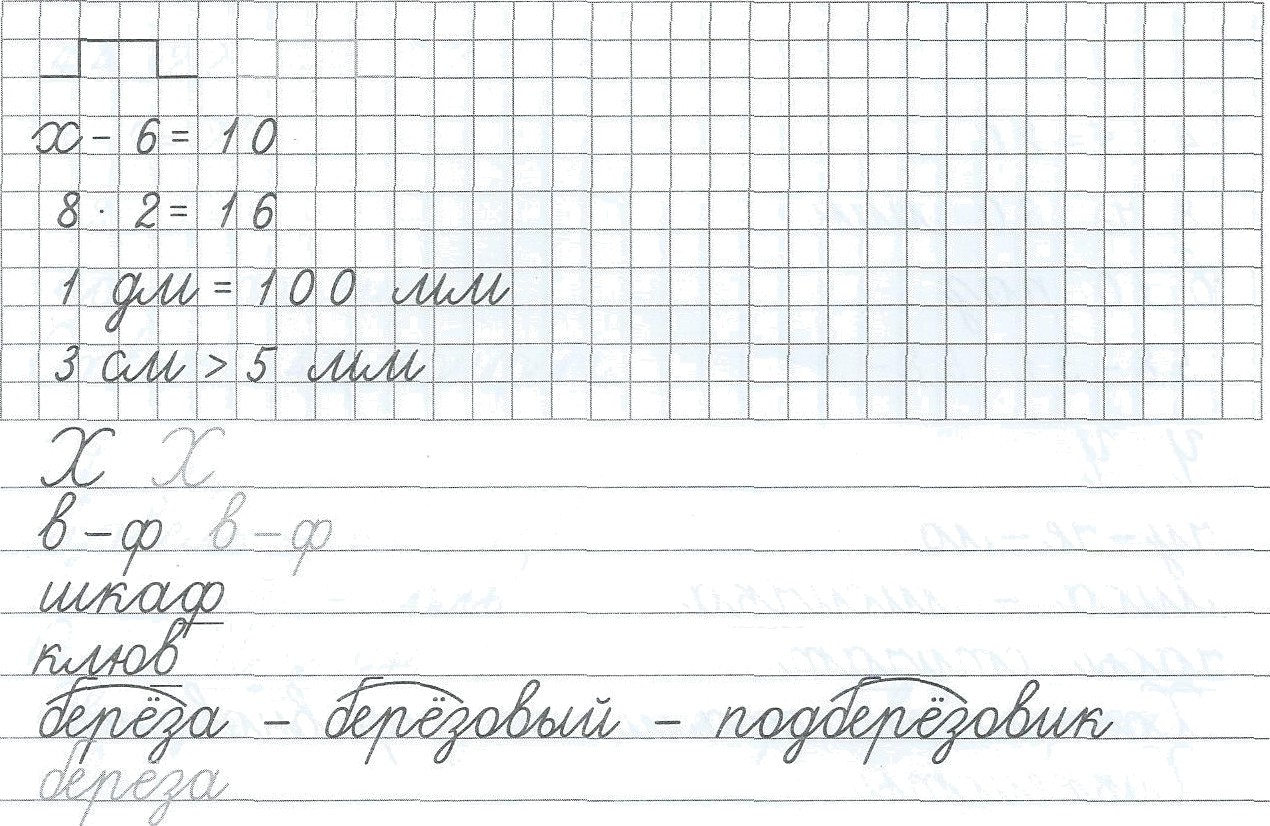 х - 6 = 10
8 · 2 = 16
1 дм = 100 мм
3 см > 5 мм
Х Х
в - ф в - ф
шкаф
клюв
берёза - берёзовый - подберёзовик
береза